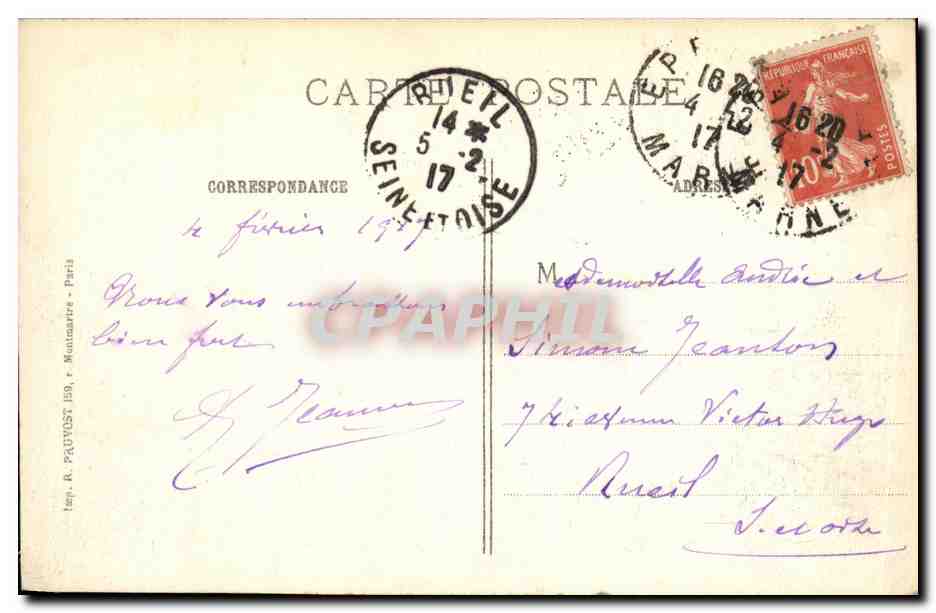 CARTE POSTALE
RUEIL
14 *
5 -2
17
SEINE ET OISE
16 20
4 -2
17
MARNE
16 20
4 -2
17
MARNE
RÉPUBLIQUE FRANÇAISE
POSTES
10
CORRESPONDANCE
ADRES
4 février 1917
Vous embrassons
bien fort
Jeanne
Mademoiselle Andrée et
Simone Jeanton
avenue Victor Hugo
Rueil
S. et Oise
Imp. R. PRUVOST 159, r. Montmartre - Paris
CPAPHIL